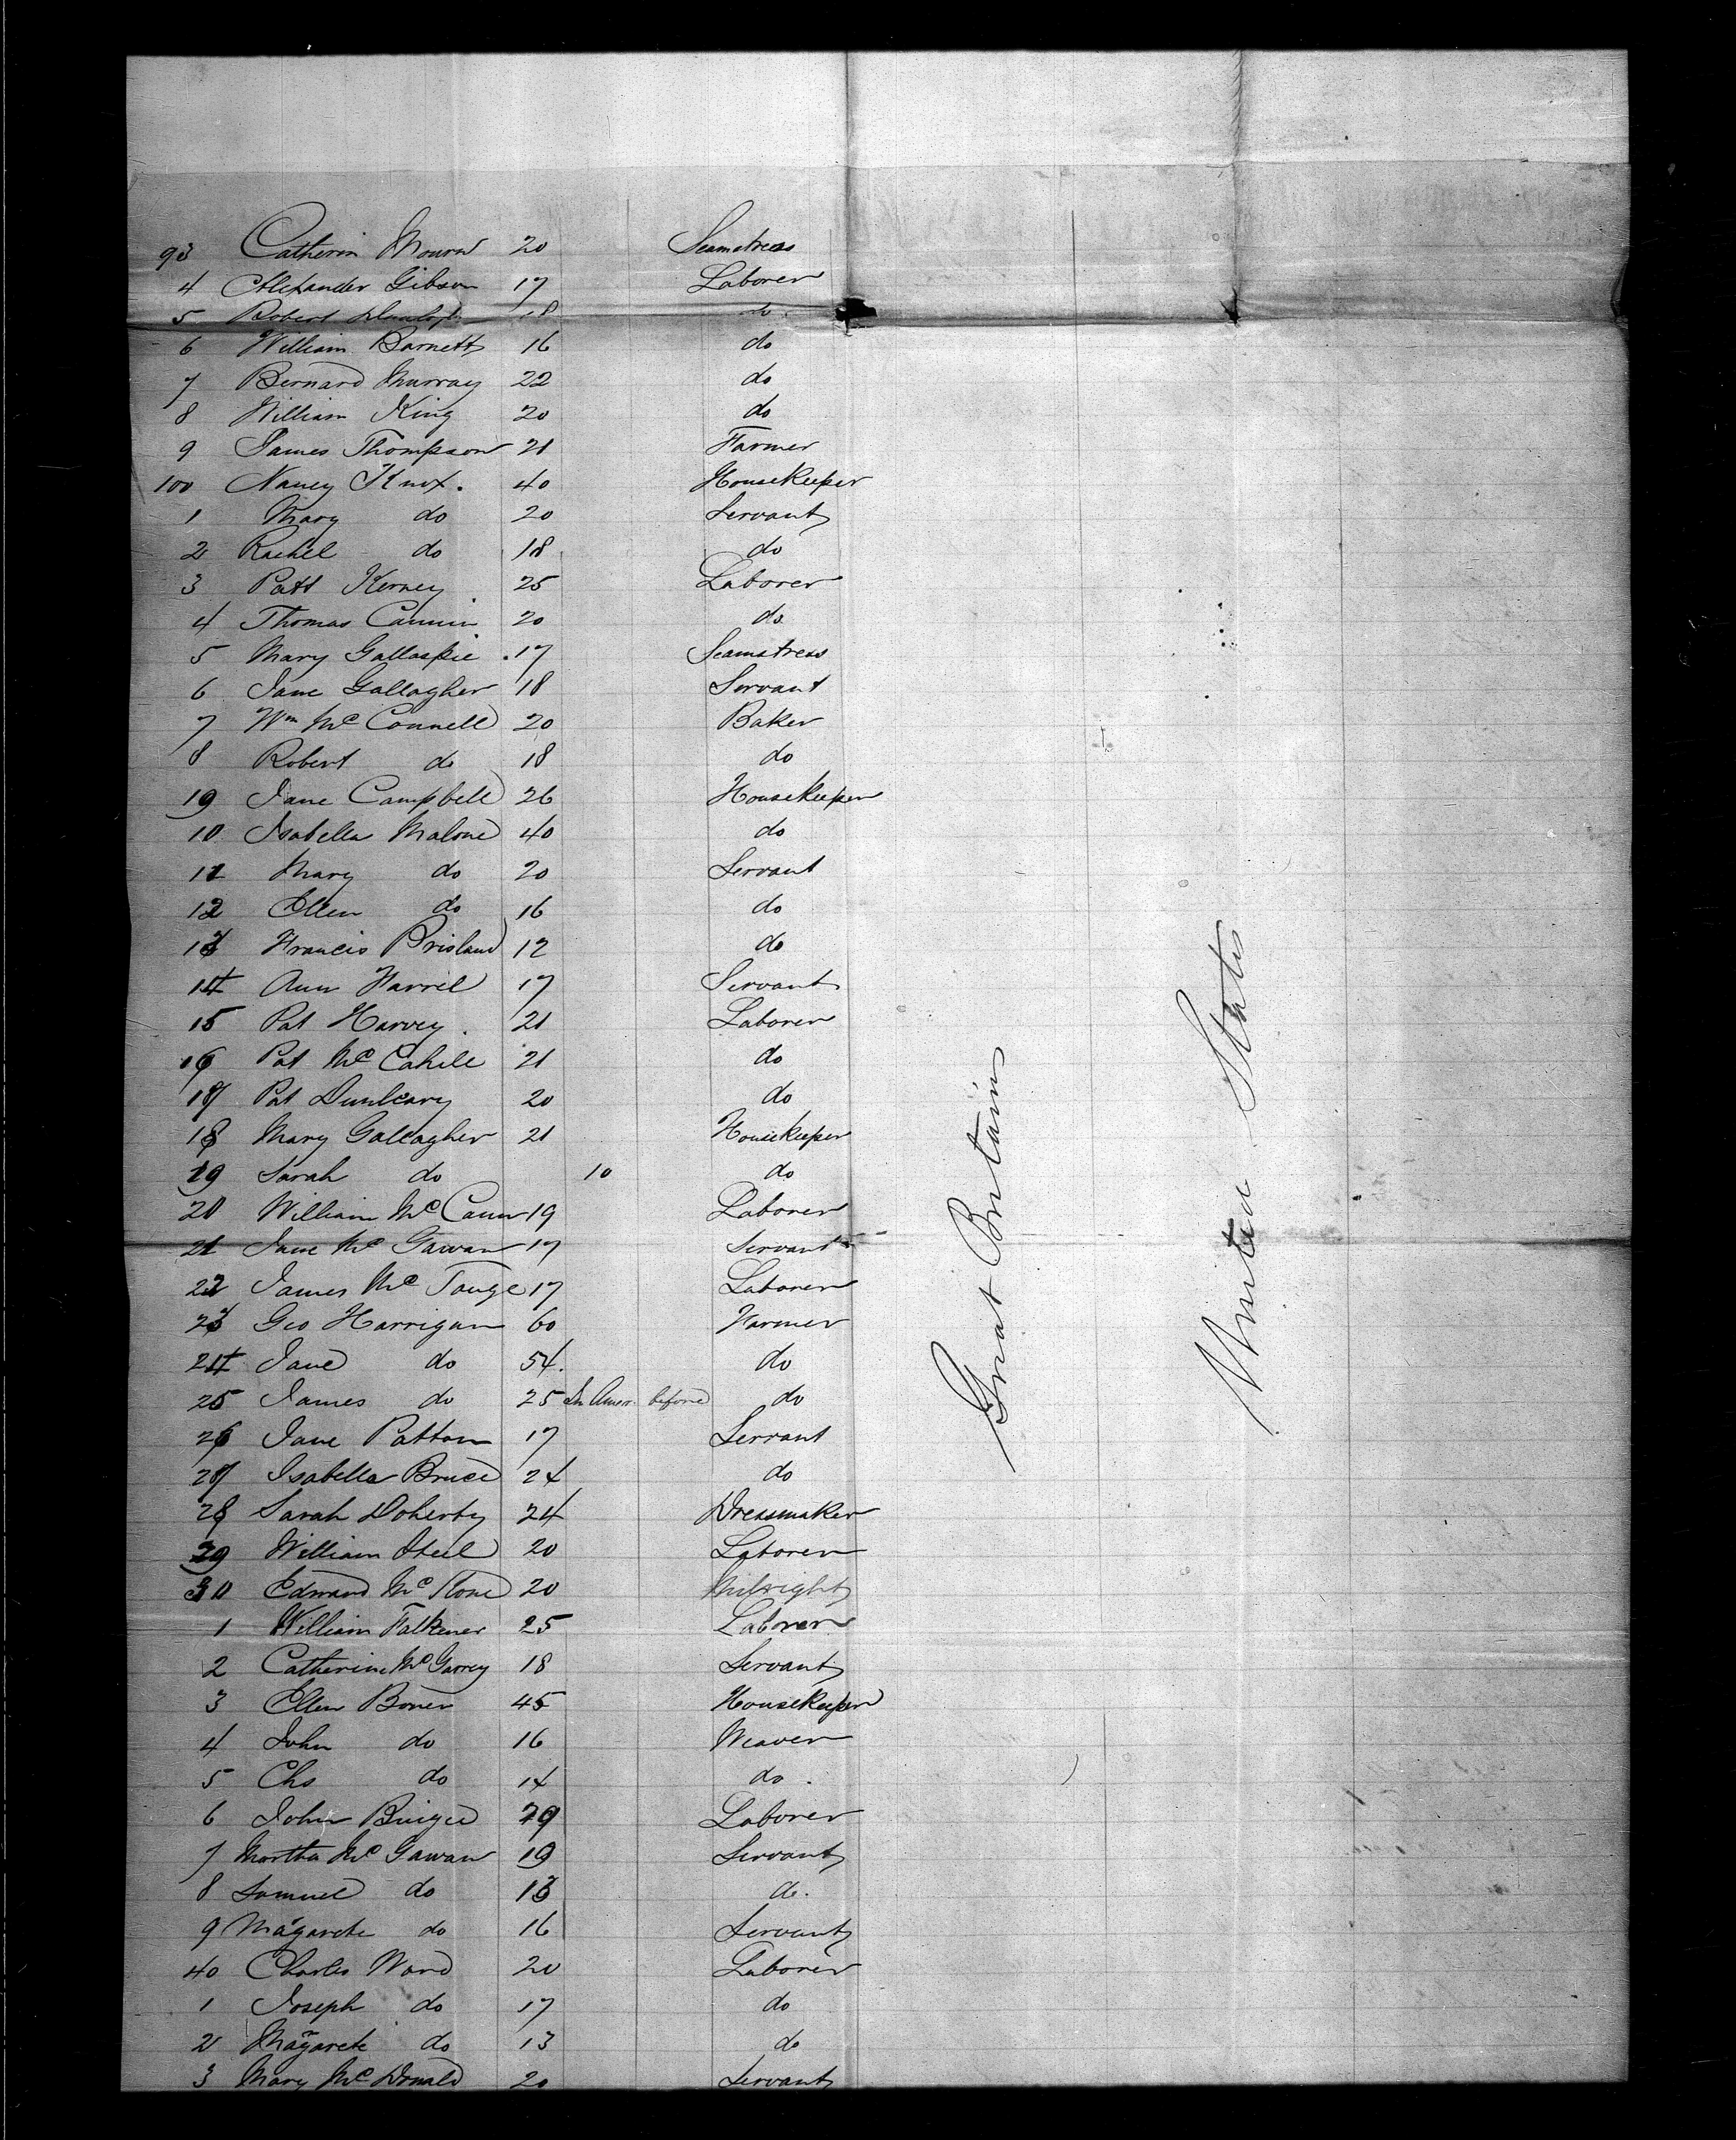 93 Catherin Mourn 20 Seamstress
4 Alexander Gibson 17 Laborer
5 Robert Dunlop 18 do
6 William Barnett 16 do
7 Bernard Murray 22 do
8 William King 20 do
9 James Thompson 21 Farmer
100 Nancy Knox. 40 Housekeeper
1 Mary do 20 Servant
2 Rachel do 18 do
3 Patt Kerney 25 Laborer
4 Thomas Cannin 20 do
5 Mary Gallaspie 17 Seamstress
6 Jane Gallagher 18 Servant
7 Wm Mc Connell 20 Baker
8 Robert do 18 do
19 Jane Campbell 26 Housekeeper
10 Isabella Malone 40 do
11 Mary do 20 Servant
12 Ellen do 16 do
13 Francis Brisland 12 do
14 Ann Harril 17 Servant
15 Pat Harvey 21 Laborer
16 Pat Mc Cahill 21 do
17 Pat Dunleavy 20 do
18 Mary Gallagher 21 Housekeeper
19 Sarah do 10 do
20 William Mc Cann 19 Laborer
21 Jane Mc Gawan 17 Servant
22 James Mc Tauge 17 Laborer
23 Geo Harrigan 60 Farmer
24 Jane do 54. do
25 James do 25 In Amer. before do
26 Jane Patton 17 Servant
27 Isabella Bruce 24 do
28 Sarah Doherty 24 Dressmaker
29 William Steel 20 Laborer
30 Edward Mc Kone 20 Milright
1 William Falkener 25 Laborer
2 Catherine Mc Garvey 18 Servant
3 Ellen Boner 45 Housekeeper
4 John do 16 Weaver
5 Chs do 14 do.
6 John 29 Laborer
7 Martha Mc Gawan 19 Servant
8 Samuel do 13 do.
9 Magarete do 16 Servant
40 Charles Ward 20 Laborer
1 Joseph do 17 do
2 Magarete do 13 do
3 Mary Mc Donald 20 Servant
Great Britain
United States